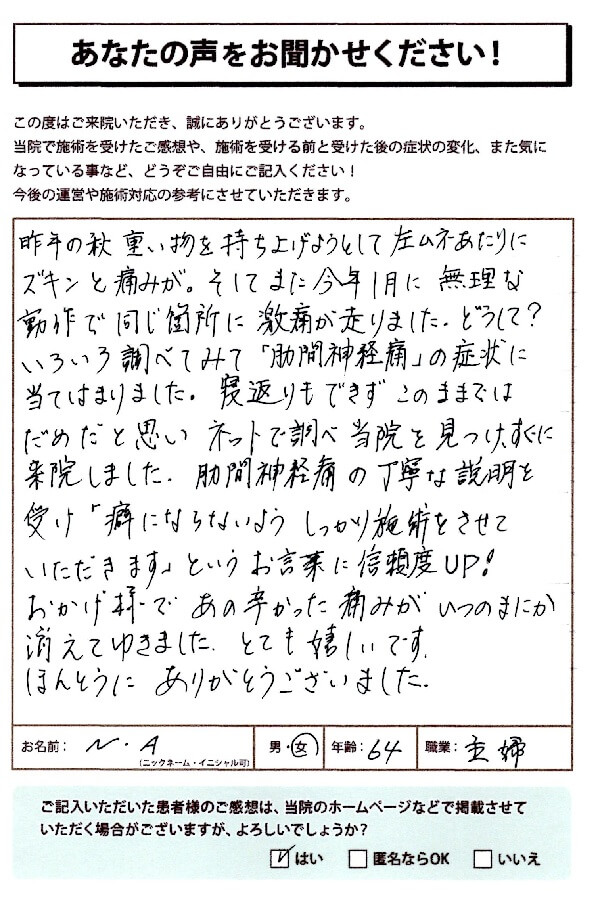 あなたの声をお聞かせください！
この度はご来院いただき、誠にありがとうございます。
当院で施術を受けたご感想や、施術を受ける前と受けた後の症状の変化、また気に
なっている事など、どうぞご自由にご記入ください！
今後の運営や施術対応の参考にさせていただきます。
昨年の秋 重い物を持ち上げようとして左ムネあたりに
ズキンと痛みが。そしてまた今年1月に 無理な
動作で同じ箇所に激痛が走りました。どうして?
いろいろ調べてみて「肋間神経痛」の症状に
当てはまりました。寝返りもできず このままでは
だめだと思い ネットで調べ 当院を見つけ、すぐに
来院しました。肋間神経痛の丁寧な説明を
受け「癖にならないよう しっかり施術をさせて
いただきます」というお言葉に信頼度UP!
おかげ様で あの辛かった痛みが いつのまにか
消えてゆきました。とても嬉しいです。
ほんとうに ありがとうございました。
お名前： N・A (ニックネーム・イニシャル可) 男・女 年齢： 64 職業： 主婦
ご記入いただいた患者様のご感想は、当院のホームページなどで掲載させて
いただく場合がございますが、よろしいでしょうか？
はい 匿名ならOK いいえ